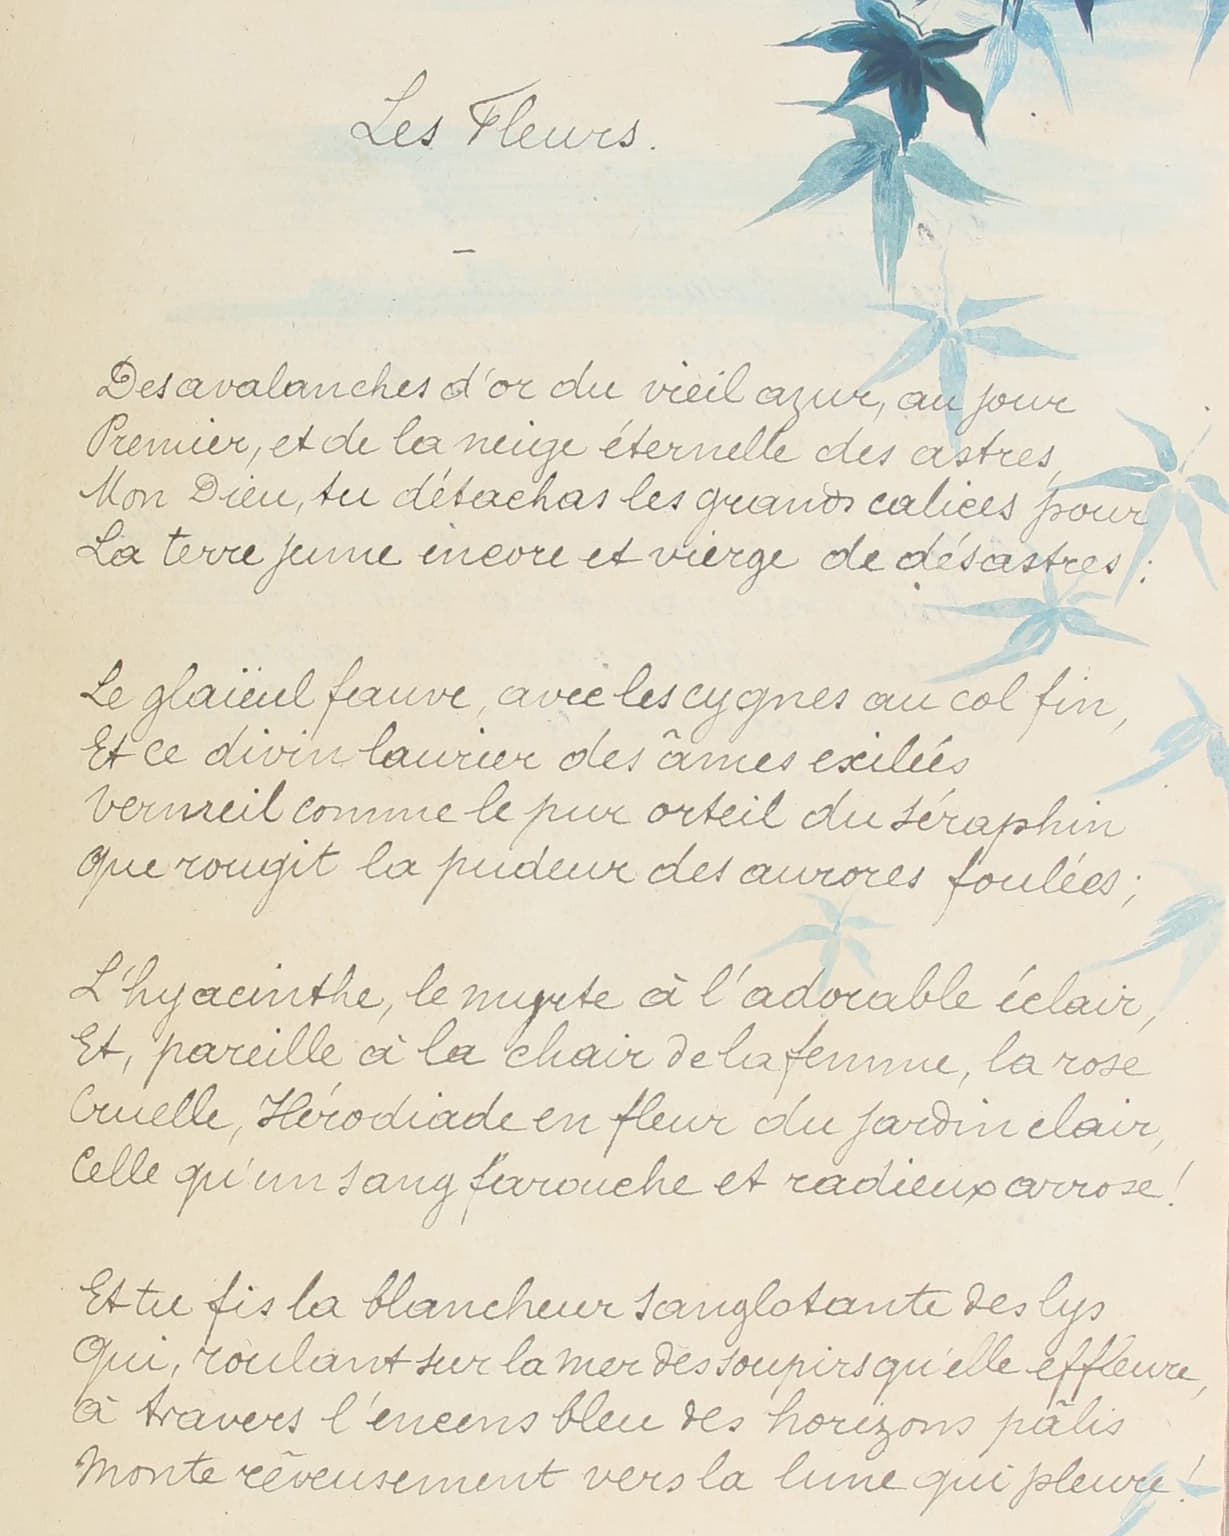 Les Fleurs.
—
Des avalanches d'or du vieil azur, au jour
Premier, et de la neige éternelle des astres,
Mon Dieu, tu détachas les grands calices pour
La terre jeune encore et vierge de désastres ;
Le glaïeul fauve, avec les cygnes au col fin,
Et ce divin laurier des âmes exilées
Vermeil comme le pur orteil du séraphin
Que rougit la pudeur des aurores foulées ;
L'hyacinthe, le myrte à l'adorable éclair,
Et, pareille à la chair de la femme, la rose
Cruelle, Hérodiade en fleur du jardin clair,
Celle qu'un sang farouche et radieux arrose !
Et tu fis la blancheur sanglotante des lys
Qui, roulant sur la mer des soupirs qu'elle effleure,
à travers l'encens bleu des horizons pâlis
Monte rêveusement vers la lune qui pleure !